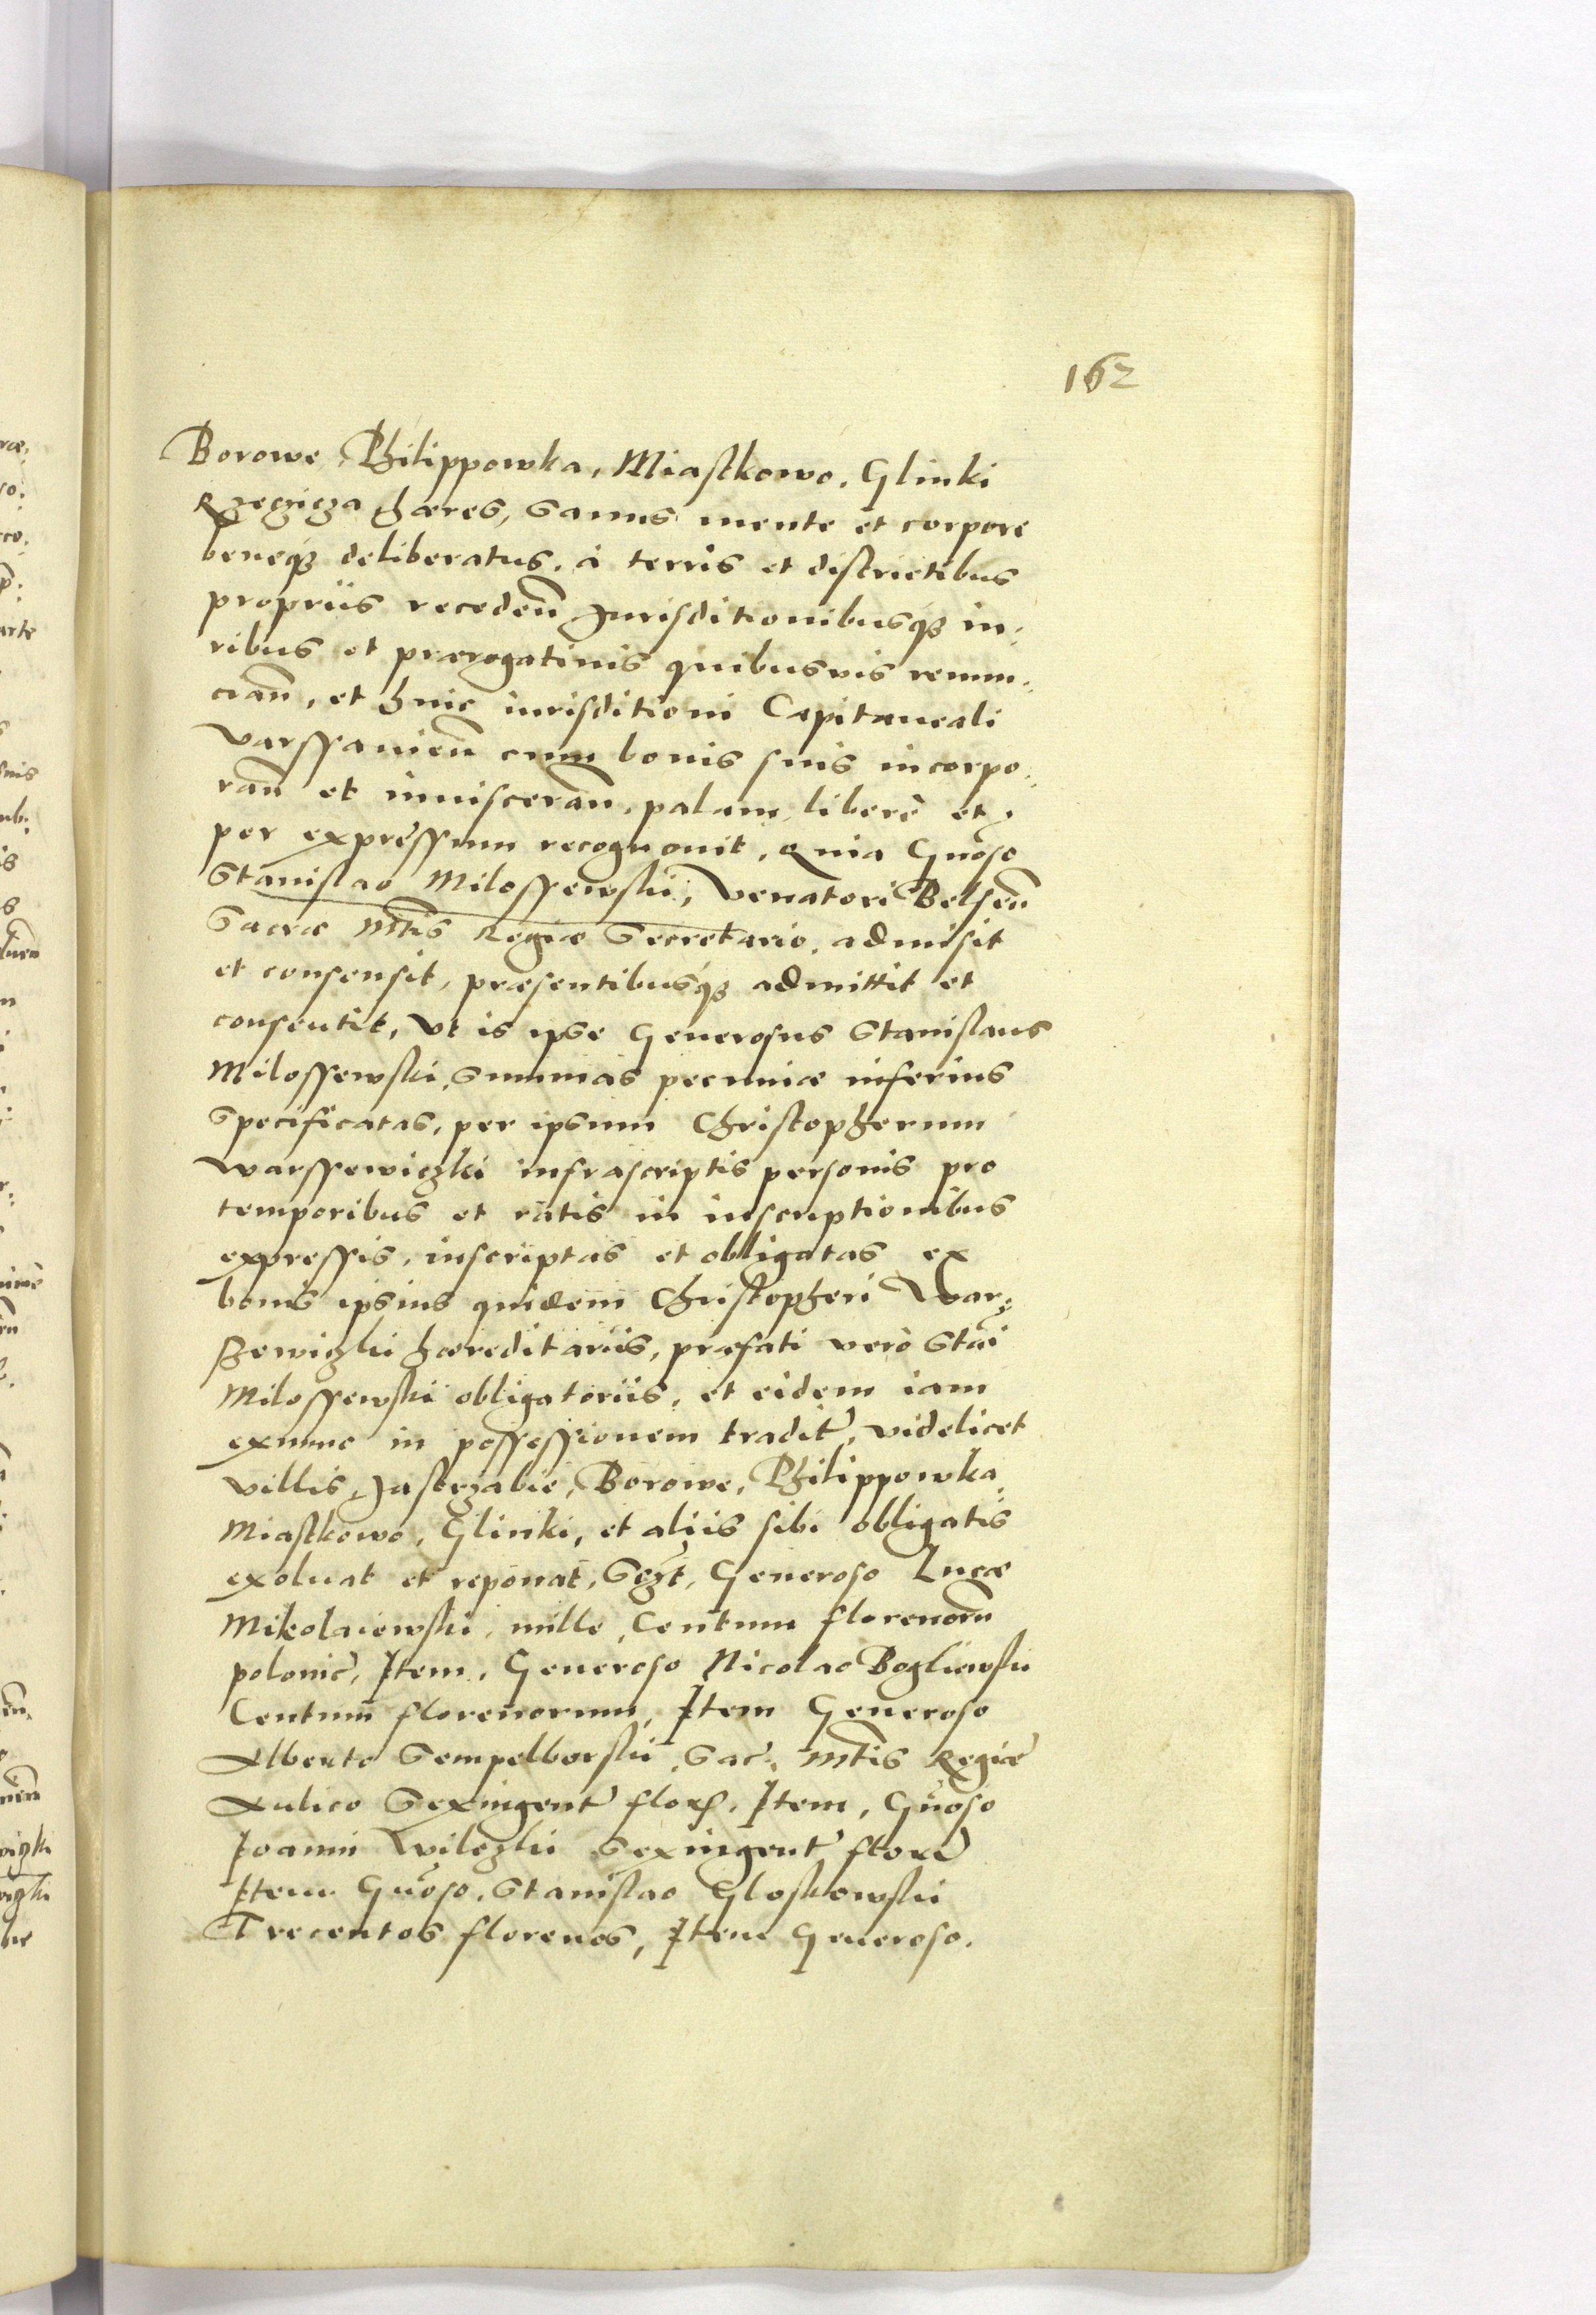 162
Borowe, Philippowka, Miastkowo, Glinki
Rzeczicza hæres, Sanus mente et corpore
beneq́ꝫ deliberatus, à terris et districtibus
propriis recedeñ Jurisditionibusq́ꝫ iu⸗
ribus et prærogatiuis quibusuis renun⸗
ciañ, et huic iurisditioni Capitaneali
Varssauieñ cum bonis suis incorpo⸗
rañ et inuiscerañ, palam liberè et
per expressum recognouit, Quia Gnõso
Stanislao Milossewski, Venatori Belseñ
Sacræ Mtis Regiæ Secretario, admisit
et consensit, præsentibusq́ꝫ admittit et
consentit, Vt is ipse Generosus Stanislaus
Milossewski, Summas pecuniæ inferius
Specificatas, per ipsum Christopherum
Warssewiczki infrascriptis personis pro
temporibus et ratis in inscriptionibus
expressis, inscriptas et obligatas ex
bonis ipsius quidem Christopheri War⸗
szewiczki hæreditariis, præfati verò Stãi
Milossewski obligatoriis, et eidem iam
exnunc in possessionem tradit, videlicet
Villis, Jastrzabie, Borowe, Philippowka,
Miastkowo, Glinki, et aliis sibi obligatis
exoluat et reponat, Generoso Lucæ
Mikolaiewski, mille, Centum florenorũ
polonic, Item, Generoso Nicolao Bogliewski
Centum florenorum, Item Generoso
Alberto Sempelborski, Sac. Mtis Regiæ
Aulico Sexingent flor, Item, Gnõso
Joanni Wilczki Sexingent flore
Item Gnõso, Stanislao Gloskowski
Trecentos florenos, Item Generoso.